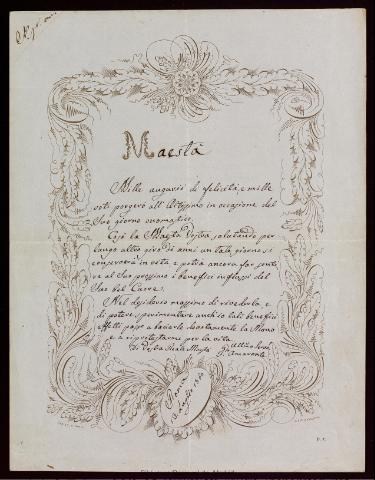 Maestà
Mille augurii di felicità, e mille
voti porgerò all'Altissimo in occasione del
Suo giorno onomastico.
Così la Maestà Vostra, salutando per
lungo altro giro di anni un tale giorno si
conserverà in vita e potrà ancora far senti
re al Suo prossimo i benefici influssi del
Suo bel Cuore.
Nel desiderio massimo di rivederla e
di potere sperimentare anch'io tali benefici
effetti passo a baciarle devotamente la Mano
e a riprotestarme per la vita
Di Vostra Reale Maestà
Amarante
Roma